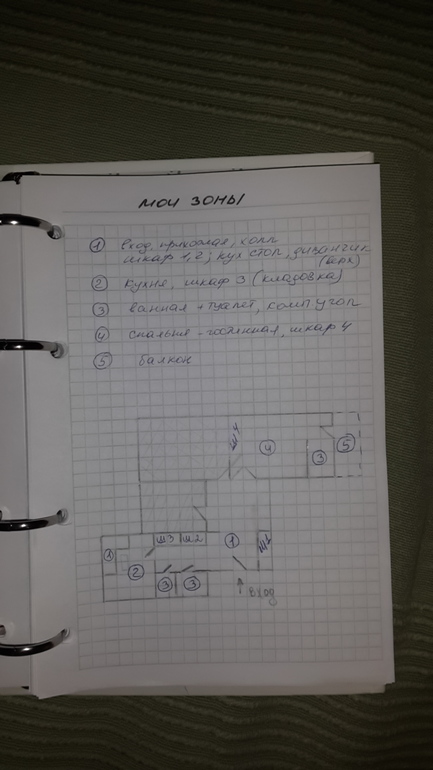 МОИ ЗОНЫ
1 вход, прихожая, холл
шкаф 1,2; кух стол, диванчик
(верх)
2 Кухня, шкаф 3 (кладовка)
3 ванная + туалет, комп. угол
4 спальня - гостинная, шкаф 4
5 балкон
Ш4
4
3
5
Ш3 Ш2
1
Ш1
1
2
3
3
вход